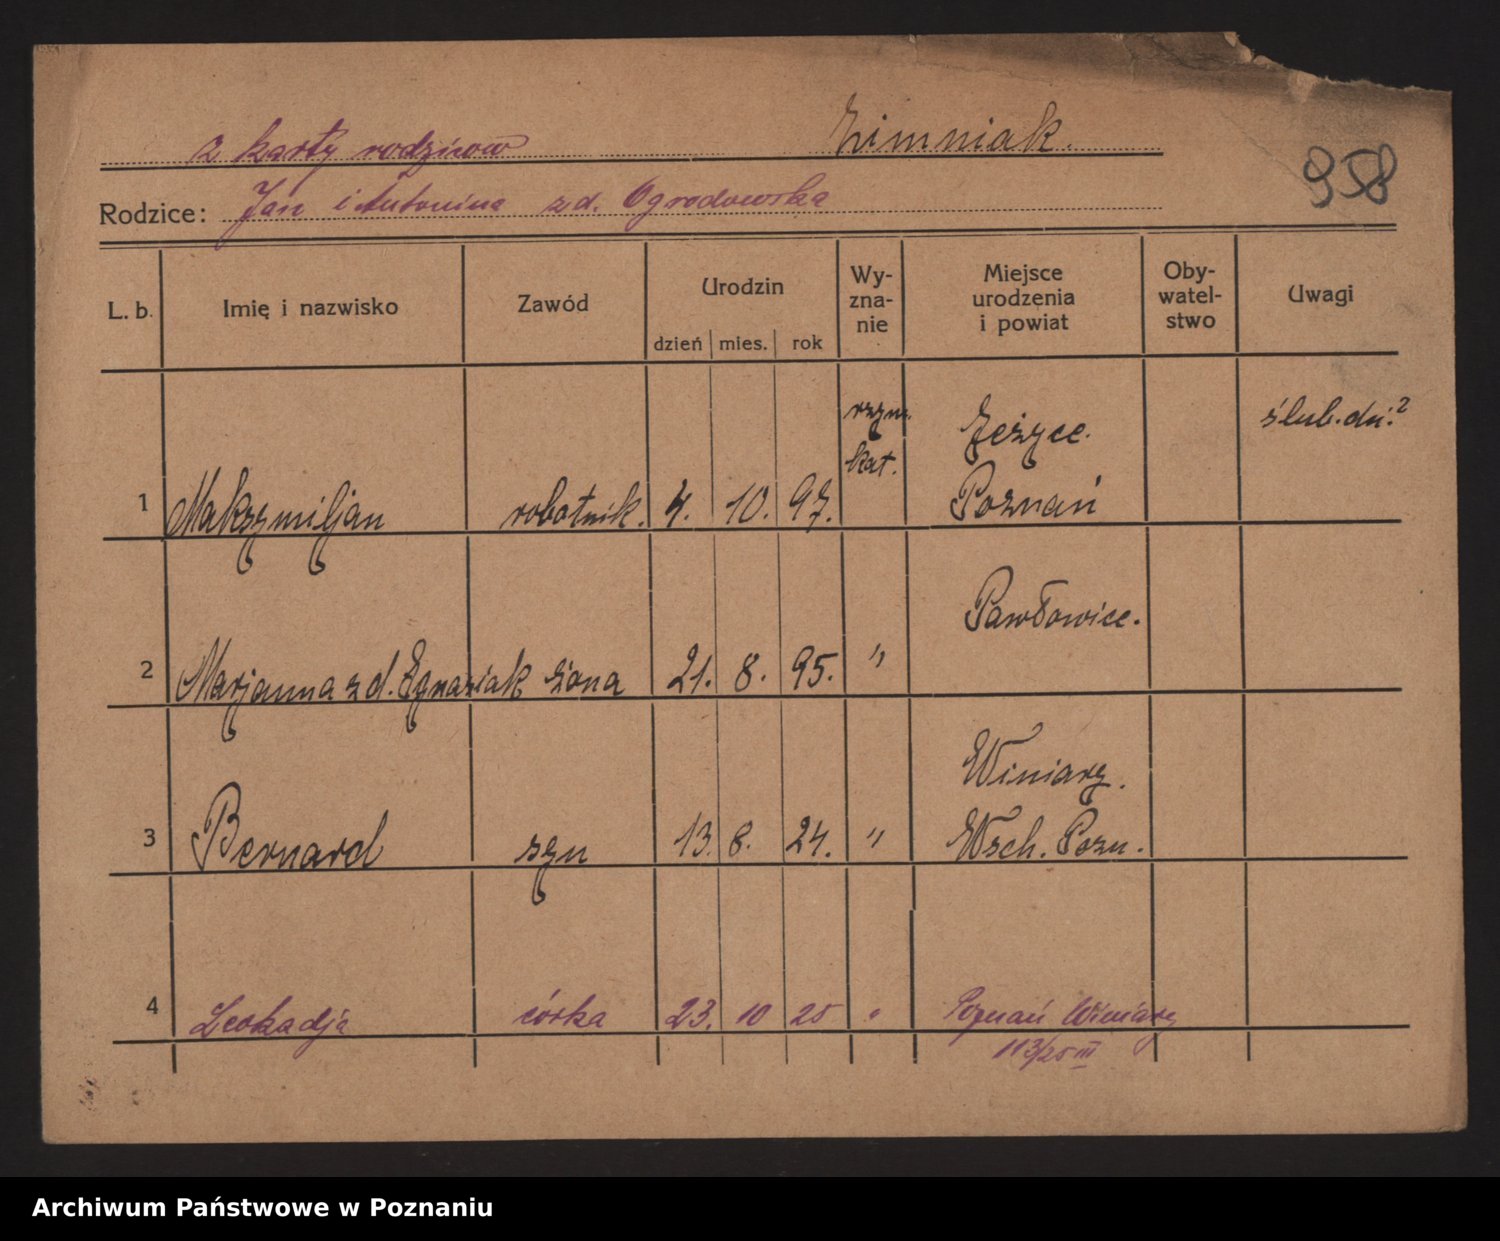 z karty rodziców Zimniak.
958
Rodzice: Jan i Antonina zd. Ogrodowska
L. b. Imię i nazwisko Zawód Urodzin dzień mies. rok Wy-zna-nie Miejsce urodzenia i powiat Oby-watel-stwo Uwagi
1 Maksymiljan robotnik. 4. 10. 97. rzym. kat. Jeżyce. Poznań ślub. dn.?
2 Marjanna zd. Ignaziak żona 21. 8. 95. " Pawłowice.
3 Bernard syn 13. 8. 24. " Winiary. Wsch. Pozn.
4 Leokadja córka 23. 10 25 " Poznań Winiary
113/25 III
Archiwum Państwowe w Poznaniu